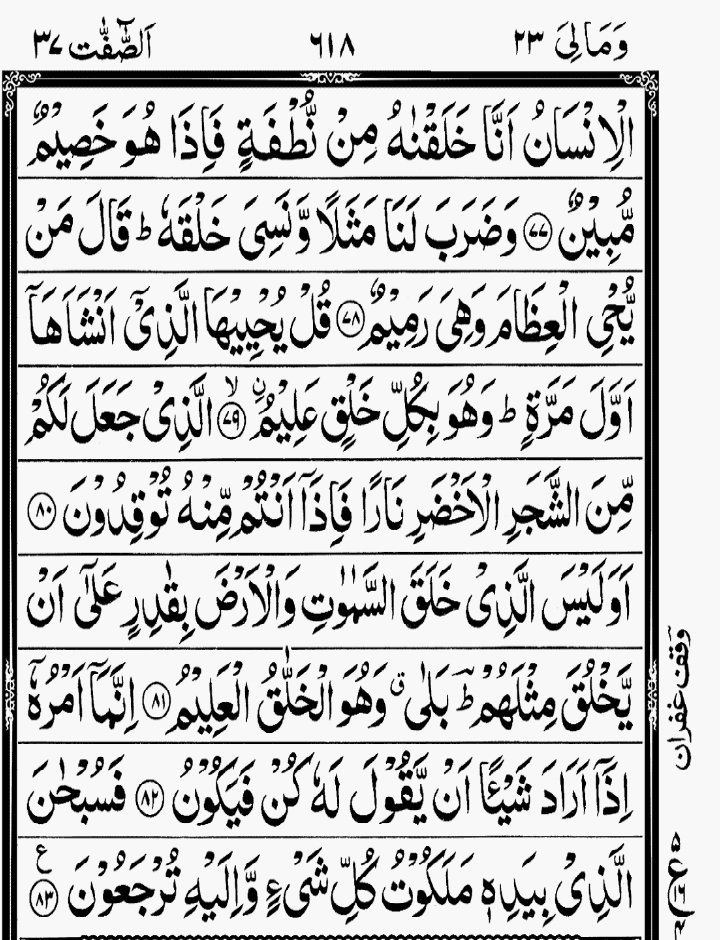 وَمَالِیَ ٢٣ ٦١٨ اَلصّٰٓفّٰت ٣٧
الْاِنْسَانُ اَنَّا خَلَقْنٰهُ مِنْ نُّطْفَةٍ فَاِذَا هُوَ خَصِیْمٌ
مُّبِیْنٌ ﴿٧٧﴾ وَضَرَبَ لَنَا مَثَلًا وَّنَسِیَ خَلْقَهٗ ؕ قَالَ مَنْ
یُّحْیِ الْعِظَامَ وَهِیَ رَمِیْمٌ ﴿٧٨﴾ قُلْ یُحْیِیْهَا الَّذِیْۤ اَنْشَاَهَاۤ
اَوَّلَ مَرَّةٍ ؕ وَهُوَ بِكُلِّ خَلْقٍ عَلِیْمُ ۨ ﴿٧٩﴾ ۙ الَّذِیْ جَعَلَ لَكُمْ
مِّنَ الشَّجَرِ الْاَخْضَرِ نَارًا فَاِذَاۤ اَنْتُمْ مِّنْهُ تُوْقِدُوْنَ ﴿٨٠﴾
اَوَلَیْسَ الَّذِیْ خَلَقَ السَّمٰوٰتِ وَالْاَرْضَ بِقٰدِرٍ عَلٰۤی اَنْ
یَّخْلُقَ مِثْلَهُمْ ؕ بَلٰی ۗ وَهُوَ الْخَلّٰقُ الْعَلِیْمُ ﴿٨١﴾ اِنَّمَاۤ اَمْرُهٗۤ
اِذَاۤ اَرَادَ شَیْـًٔا اَنْ یَّقُوْلَ لَهٗ كُنْ فَیَكُوْنُ ﴿٨٢﴾ فَسُبْحٰنَ
الَّذِیْ بِیَدِهٖ مَلَكُوْتُ كُلِّ شَیْءٍ وَّاِلَیْهِ تُرْجَعُوْنَ ﴿٨٣﴾ ع
وقف غفران